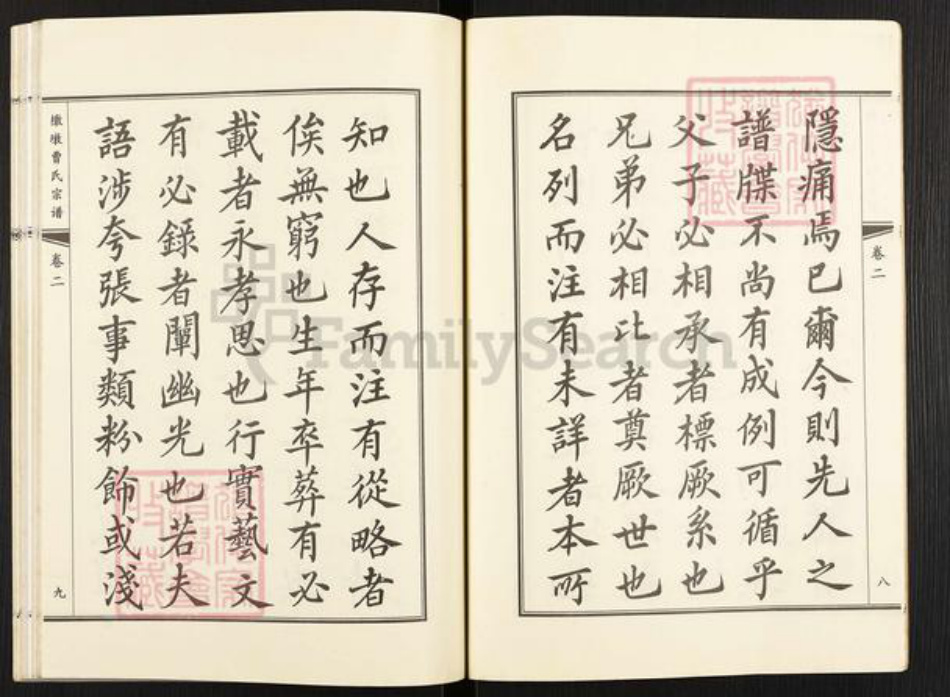 卷二
八
隱痛焉已爾今則先人之
譜牒不尚有成例可循乎
父子必相承者標厥系也
兄弟必相比者奠厥世也
名列而注有未詳者本所
知也人存而注有從略者
俟無窮也生年卒葬有必
載者永孝思也行實藝文
有必錄者闡幽光也若夫
語涉夸張事類粉飾或淺
墩墩曹氏宗谱
卷二
九
FamilySearch